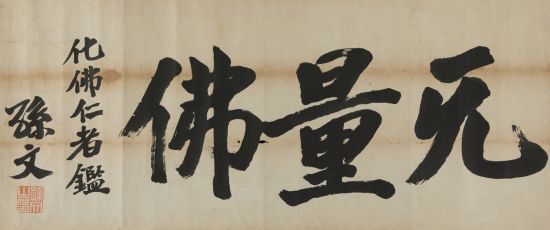 无量佛
化佛仁者鑑
孫文